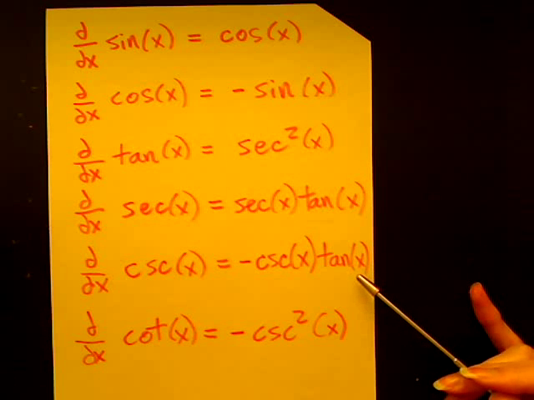 d/dx sin(x) = cos(x)
d/dx cos(x) = -sin(x)
d/dx tan(x) = sec²(x)
d/dx sec(x) = sec(x)tan(x)
d/dx csc(x) = -csc(x)tan(x)
d/dx cot(x) = -csc²(x)